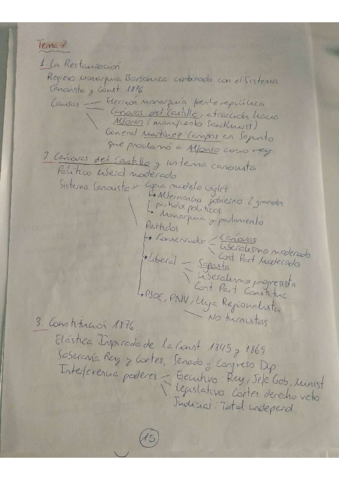 Tema 7
1. La Restauración
Regreso Monarquía Borbónica combinado con el Sistema
Canovista y Const. 1876
Causas Elección monarquía frente república
Cánovas del Castillo atracción hacia
Alfonso (manifiesto Sandhurst)
General Martínez Campos en Sagunto
que proclamó a Alfonso como rey
2. Cánovas del Castillo y sistema canovista
Político liberal moderado
Sistema Canovista Copia modelo inglés
Alternancia gobierno 2 grandes
partidos políticos
Monarquía y parlamento
Partidos
Conservador Cánovas
Liberalismo moderado
Cont Part Moderado
Liberal Sagasta
Liberalismo progresista
Cont Part Constituc
PSOE, PNV, Lliga Regionalista
No turnistas
3. Constitución 1876
Elástica Inspirada de la Const 1845 y 1869
Soberanía Rey y Cortes, Senado y Congreso Dip
Interferencia poderes Ejecutivo Rey, Jefe Gob, Minist
Legislativo Cortes derecho veto
Judicial: Total independ
15